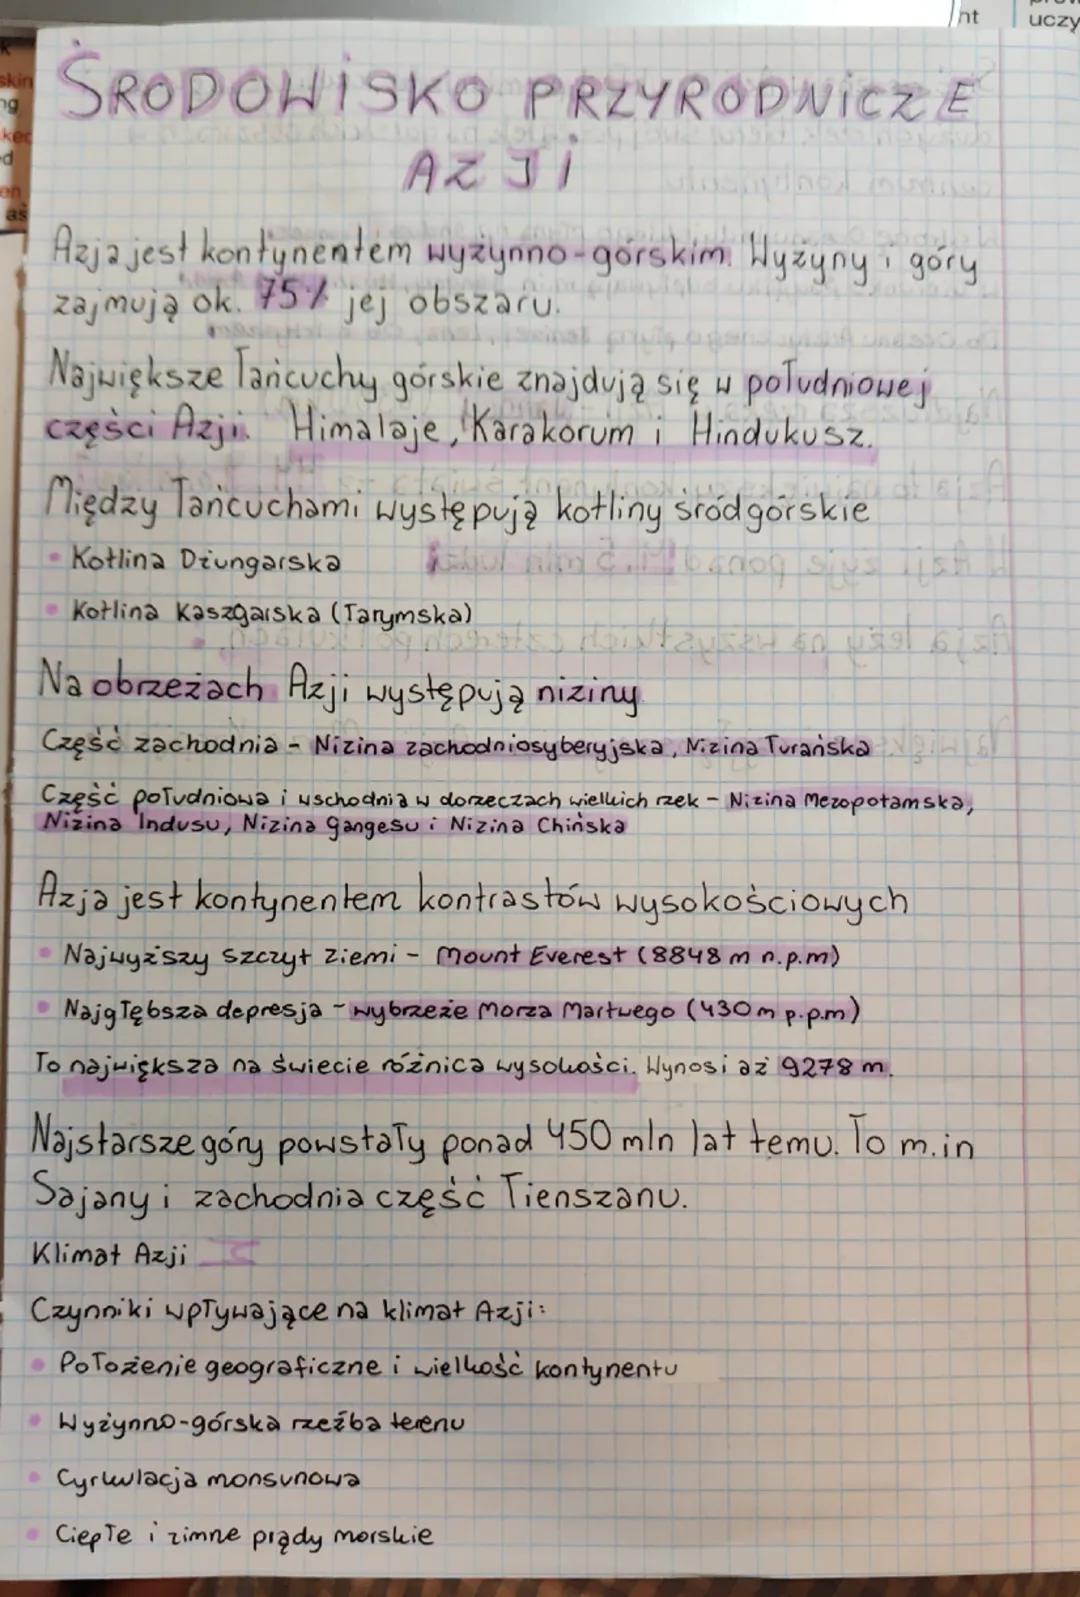 ŚRODOWISKO PRZYRODNICZE
AZJI
Azja jest kontynentem wyżynno-górskim. Wyżyny i góry
zajmują ok. 75% jej obszaru.
Największe łańcuchy górskie znajdują się w południowej
części Azji. Himalaje, Karakorum i Hindukusz.
Między łańcuchami występują kotliny śródgórskie
• Kotlina Dżungarska
• Kotlina Kaszgarska (Tarymska)
Na obrzeżach Azji występują niziny.
Część zachodnia - Nizina zachodniosyberyjska, Nizina Turańska
Część południowa i wschodnia w dorzeczach wielkich rzek - Nizina Mezopotamska,
Nizina Indusu, Nizina Gangesu i Nizina Chińska
Azja jest kontynentem kontrastów wysokościowych
• Najwyższy szczyt ziemi - Mount Everest (8848 m n.p.m)
• Najgłębsza depresja - wybrzeże Morza Martwego (430 m p.p.m)
To największa na świecie różnica wysokości. Wynosi aż 9278 m.
Najstarsze góry powstały ponad 450 mln lat temu. To m.in
Sajany i zachodnia część Tienszanu.
Klimat Azji
Czynniki wpływające na klimat Azji:
• Położenie geograficzne i wielkość kontynentu
• Wyżynno-górska rzeźba terenu
• Cyrkulacja monsunowa
• Ciepłe i zimne prądy morskie